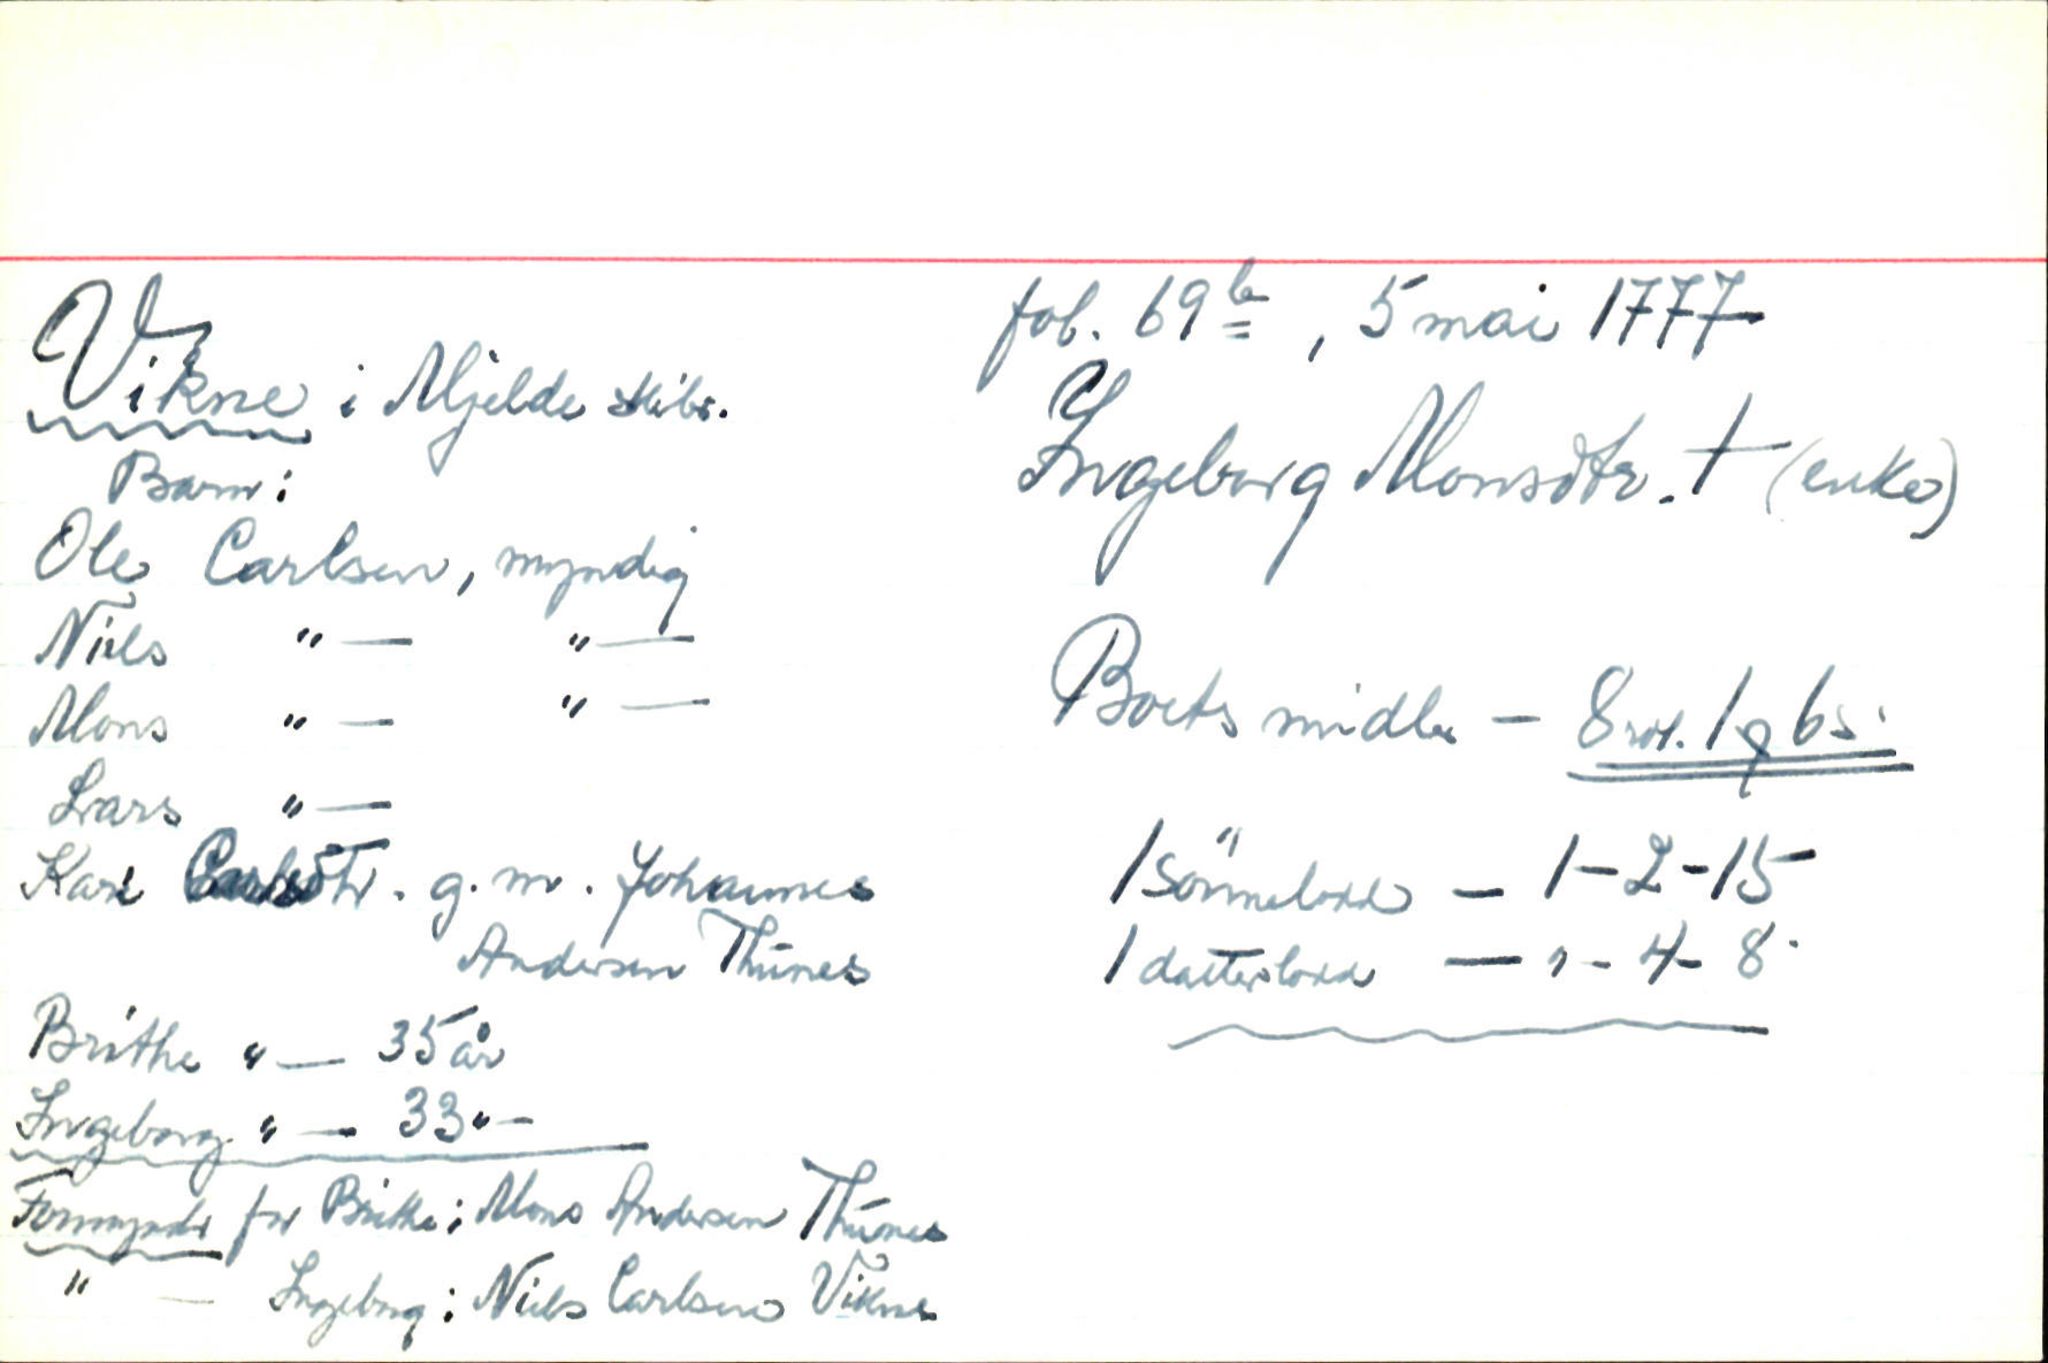 Vikne i Mjelde skibr.
Barn:
Ole Carlsen, myndig
Niels " — " —
Mons " — " —
Lars " —
Kari Carlsdtr. g. m. Johannes
Andersen Thunes
Brithe " — 35 år
Ingeborg " — 33 " —
Formynder for Brithe: Mons Andersen Thunes
" — Ingeborg: Niels Carlsen Vikne
fol. 69b, 5 mai 1777
Ingeborg Monsdtr. † (enke)
Boets midler — 8 rdl. 1 q 6 s.
1 sönnelodd — 1 - 2 - 15
1 datterlodd — " - 4 - 8